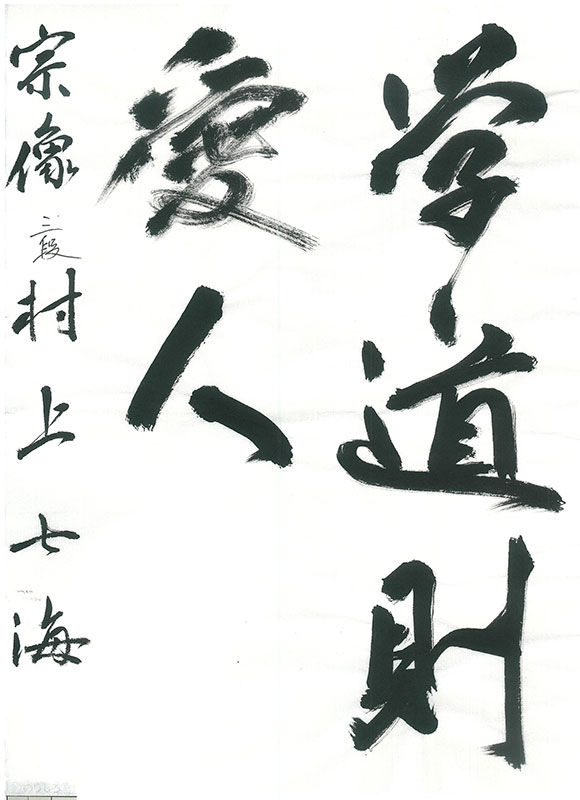 学道則
愛人
宗像三段村上七海